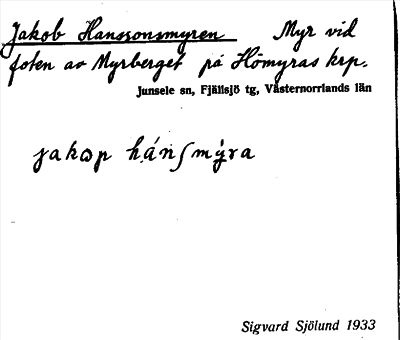 Jakob Hanssonsmyren Myr vid
foten av Myrberget på Hömyras krp.
Junsele sn, Fjällsjö tg, Västernorrlands län
jakɷp hánʃmỳ̜ra
Sigvard Sjölund 1933